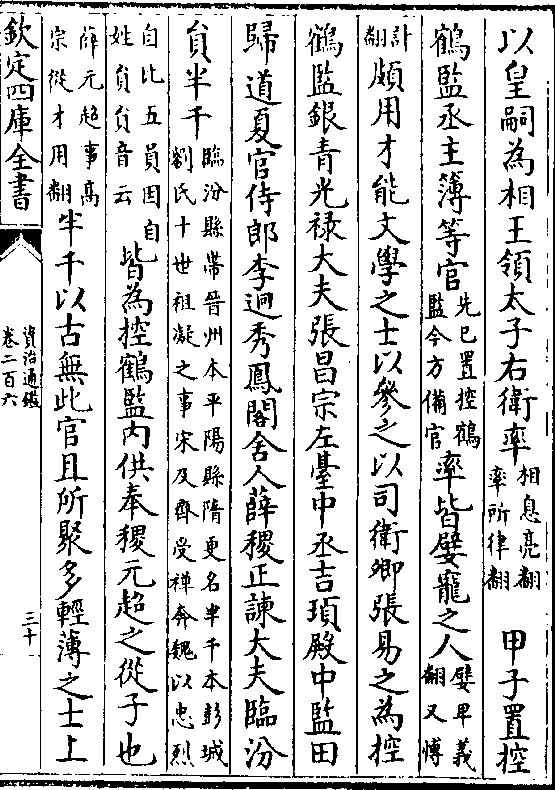 以皇嗣為相王領太子右衛率相息亮翻率所律翻甲子置控
鶴監丞主簿等官先已置控鶴監今方備官率皆嬖寵之人嬖卑義翻又愽
計翻頗用才能文學之士以參之以司衛卿張易之為控
鶴監銀青光禄大夫張昌宗左臺中丞吉頊殿中監田
歸道夏官侍郎李迥秀鳳閣舍人薛稷正諫大夫臨汾
員半千臨汾縣帶晉州本平陽縣隋更名半千本彭城劉氏十世祖凝之事宋及齊受禪奔魏以忠烈
自比五員因自姓員員音云皆為控鶴監内供奉稷元超之從子也
薛元超事高宗從才用翻半千以古無此官且所聚多輕薄之士上
欽定四庫全書
資治通鑑
卷二百六
三十